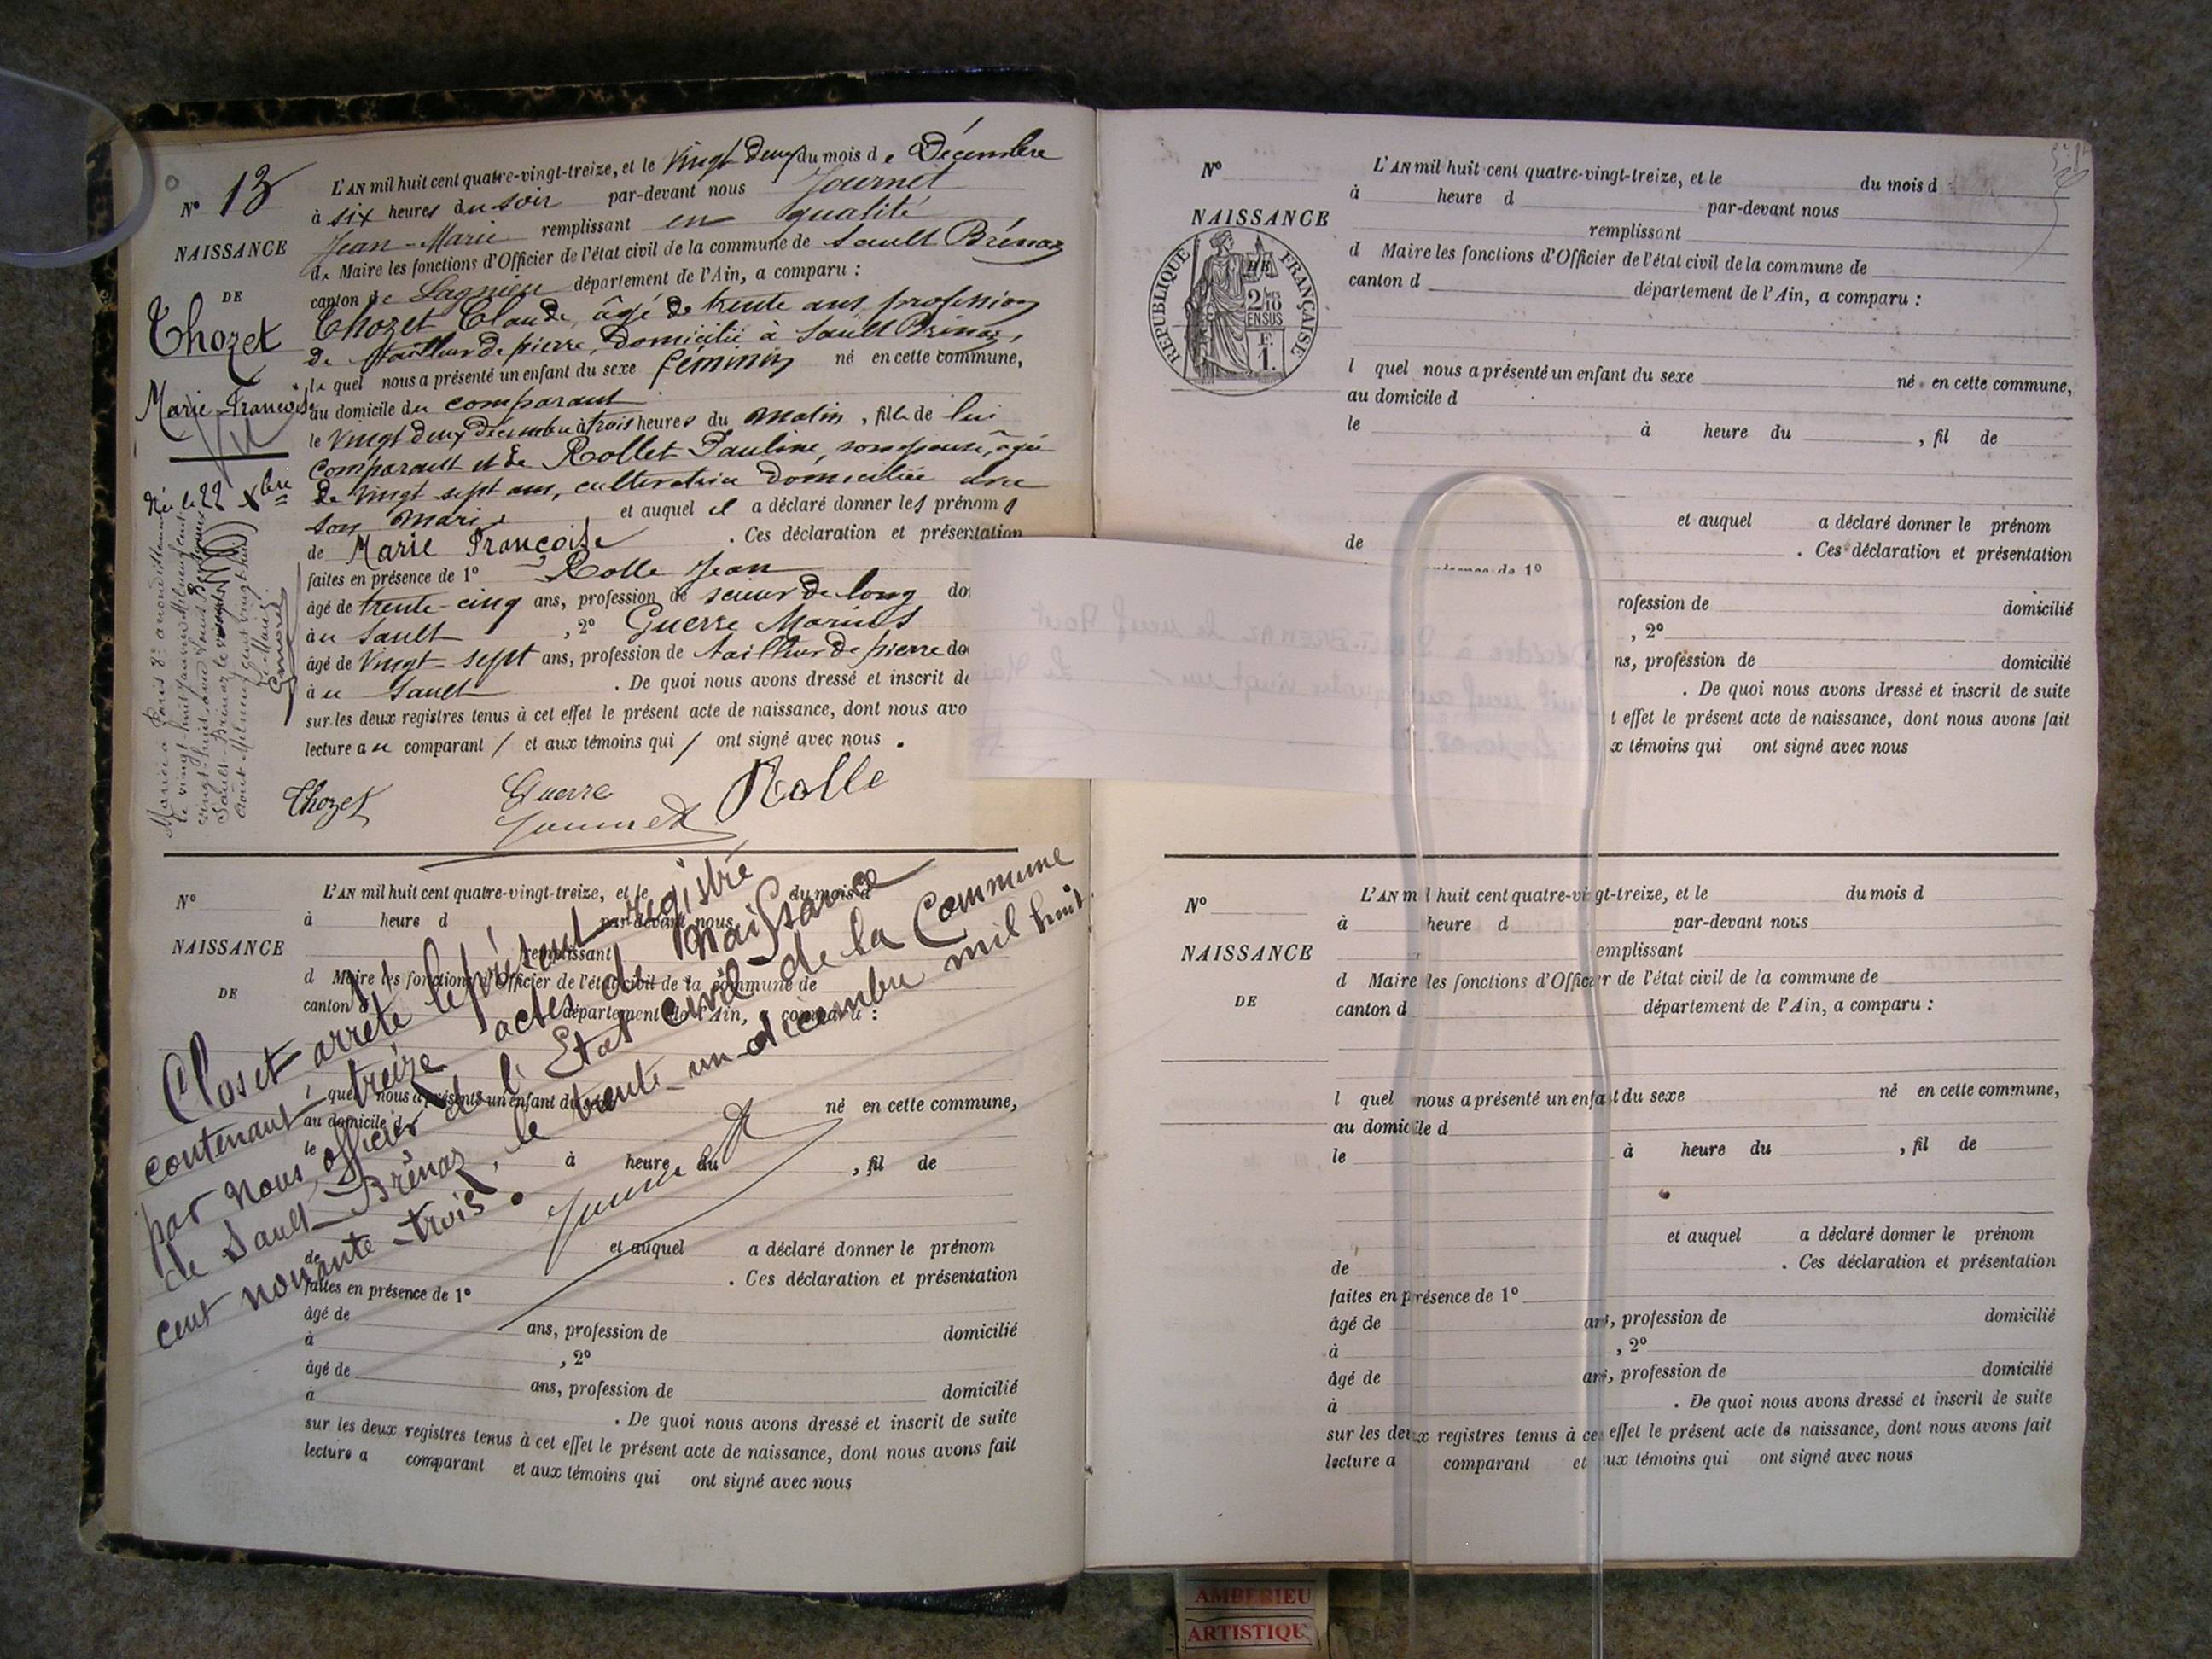 N° 13
NAISSANCE
DE
Thozet
Marie-Françoise
Vu
Née le 22 Xbre
L'AN mil huit cent quatre-vingt-treize, et le Vingt deux du mois de Décembre
à six heures du soir par-devant nous Journet
Jean-Marie remplissant en qualité
de Maire les fonctions d'Officier de l'état civil de la commune de Sault Brénaz
canton de Lagnieu département de l'Ain, a comparu :
Thozet Claude, âgé de trente ans, profession
de tailleur de pierre, domicilié à Sault Brénaz,
le quel nous a présenté un enfant du sexe féminin né en cette commune,
au domicile du comparant
le Vingt deux décembre à trois heures du matin, fille de lui
comparant et de Rollet Pauline, son épouse, âgée
de vingt sept ans, cultivatrice domiciliée avec
son mari et auquel il a déclaré donner les prénoms
de Marie Françoise . Ces déclaration et présentation
faites en présence de 1° Rolle Jean
âgé de trente-cinq ans, profession de scieur de long do
à u Sault , 2° Guerre Marius
âgé de Vingt-sept ans, profession de tailleur de pierre do
à u Sault . De quoi nous avons dressé et inscrit de
sur les deux registres tenus à cet effet le présent acte de naissance, dont nous avo
lecture au comparant / et aux témoins qui / ont signé avec nous .
Thozet Guerre Rolle
Journet
Mariée à Paris 8e arrondissement
le vingt huit janvier Mil neuf cent
vingt-huit avec
Sault-Brénaz le
août Mil neuf cent vingt huit
Le Maire
N°
NAISSANCE
DE
L'AN mil huit cent quatre-vingt-treize, et le du mois d
à heure d par-devant nous
remplissant
d Maire les fonctions d'Officier de l'état civil de la commune de
canton d département de l'Ain, a comparu :
l quel nous a présenté un enfant du sexe né en cette commune,
au domicile d
le à heure du , fil de
et auquel a déclaré donner le prénom
de . Ces déclaration et présentation
faites en présence de 1°
âgé de ans, profession de domicilié
à , 2°
âgé de ans, profession de domicilié
à . De quoi nous avons dressé et inscrit de suite
sur les deux registres tenus à cet effet le présent acte de naissance, dont nous avons fait
lecture a comparant et aux témoins qui ont signé avec nous
Clos et arrêté le présent registre
contenant treize actes de naissance
par nous, officier de l'Etat civil de la Commune
de Sault-Brénaz, le trente-un décembre mil huit
cent nonante-trois.
Journet
N°
NAISSANCE
RÉPUBLIQUE FRANÇAISE
2/10 EN SUS
F. 1.
L'AN mil huit cent quatre-vingt-treize, et le du mois d
à heure d par-devant nous
remplissant
d Maire les fonctions d'Officier de l'état civil de la commune de
canton d département de l'Ain, a comparu :
l quel nous a présenté un enfant du sexe né en cette commune,
au domicile d
le à heure du , fil de
et auquel a déclaré donner le prénom
de . Ces déclaration et présentation
de 1°
rofession de domicilié
, 2°
ns, profession de domicilié
. De quoi nous avons dressé et inscrit de suite
t effet le présent acte de naissance, dont nous avons fait
x témoins qui ont signé avec nous
N°
NAISSANCE
DE
L'AN mil huit cent quatre-vingt-treize, et le du mois d
à heure d par-devant nous
remplissant
d Maire les fonctions d'Officier de l'état civil de la commune de
canton d département de l'Ain, a comparu :
l quel nous a présenté un enfant du sexe né en cette commune,
au domicile d
le à heure du , fil de
et auquel a déclaré donner le prénom
de . Ces déclaration et présentation
faites en présence de 1°
âgé de ans, profession de domicilié
à , 2°
âgé de ans, profession de domicilié
à . De quoi nous avons dressé et inscrit de suite
sur les deux registres tenus à cet effet le présent acte de naissance, dont nous avons fait
lecture a comparant et aux témoins qui ont signé avec nous
AMBERIEU
ARTISTIQU